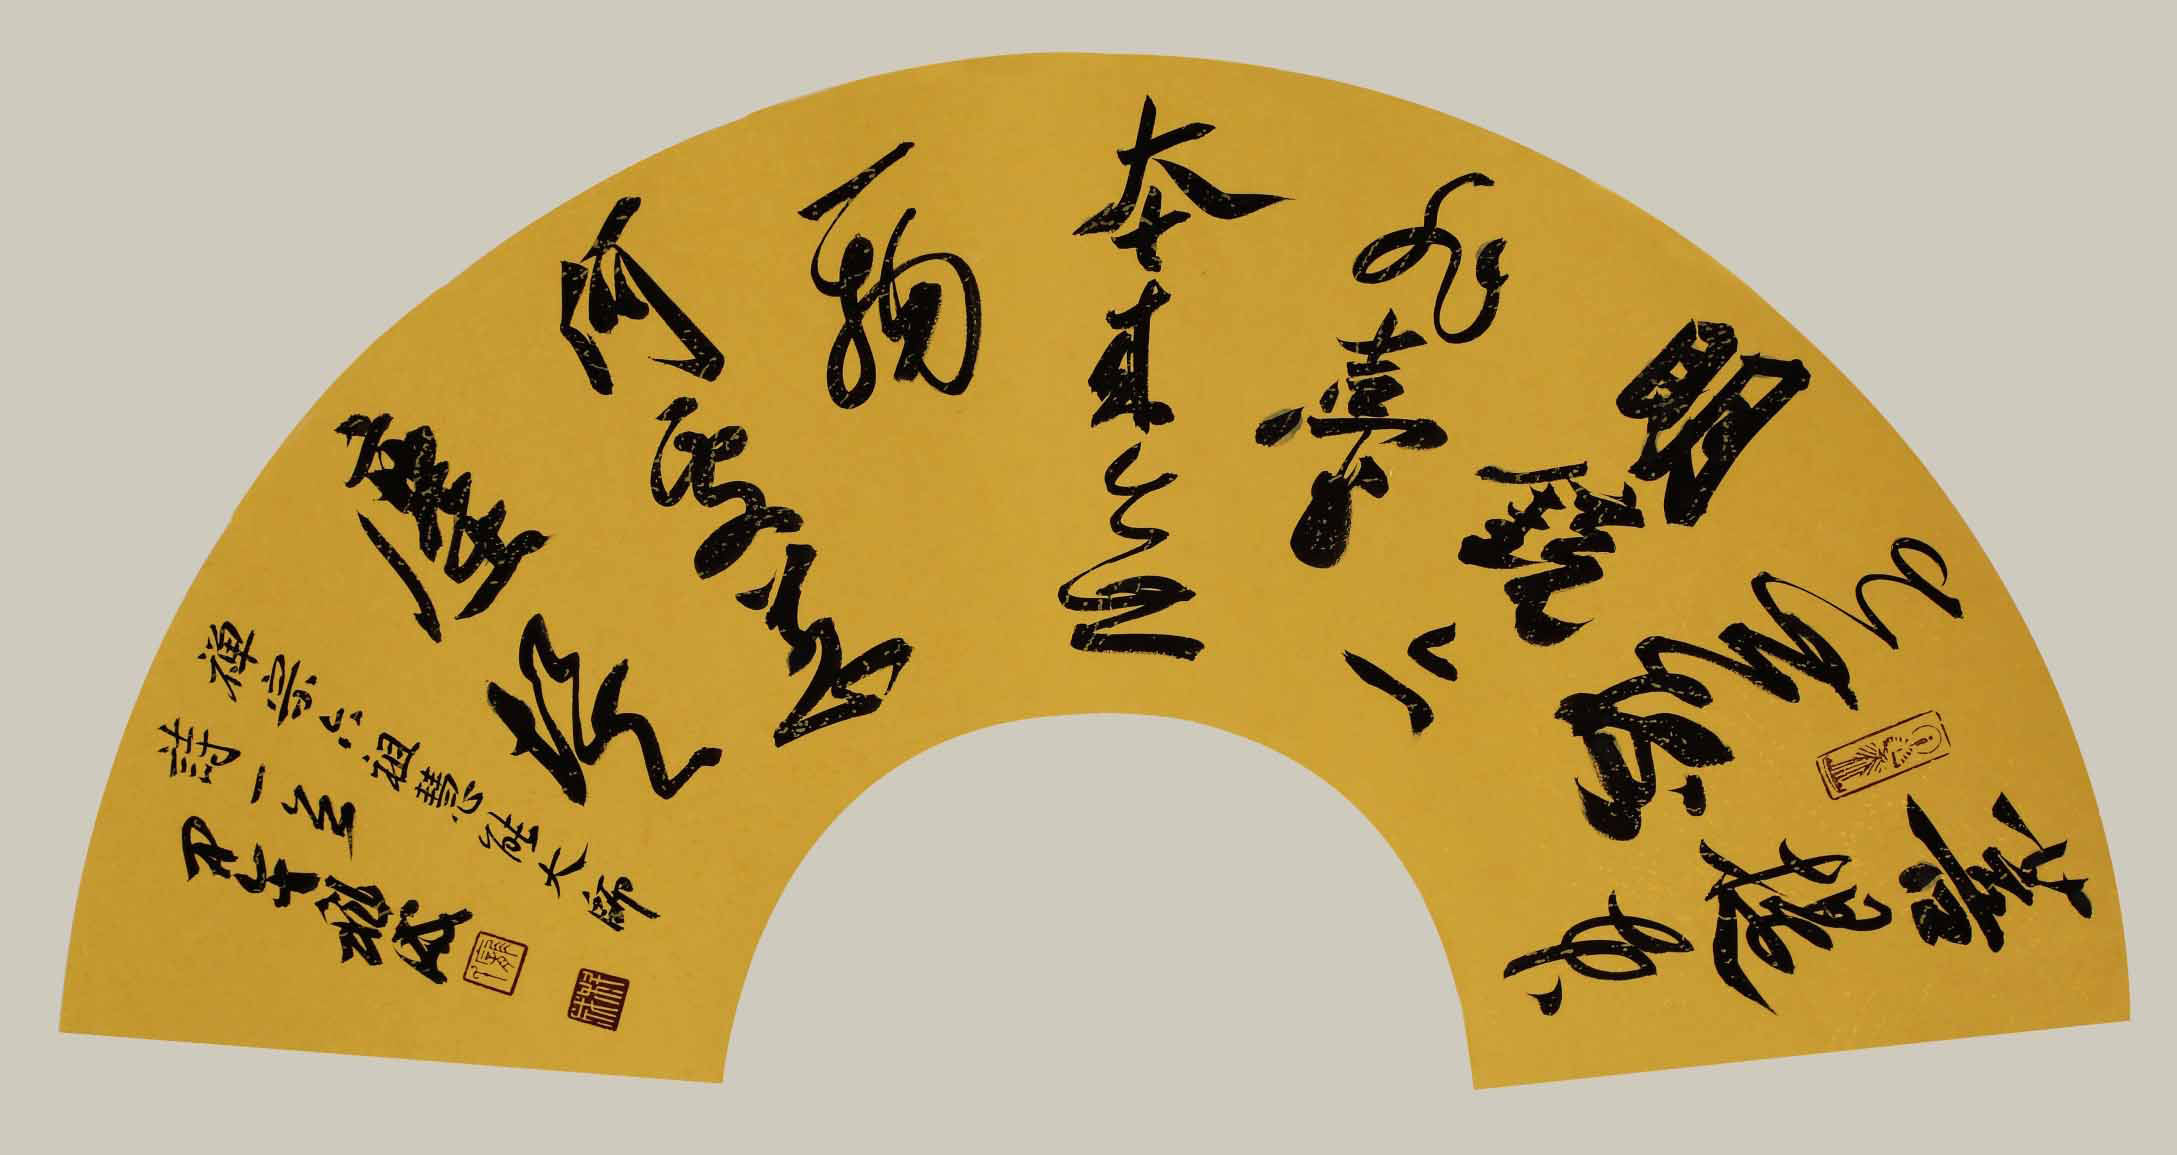 菩提本
无樹
明鏡亦
非臺
本来無
一物
何處惹
塵埃
禪宗六祖慧能大師
詩一首